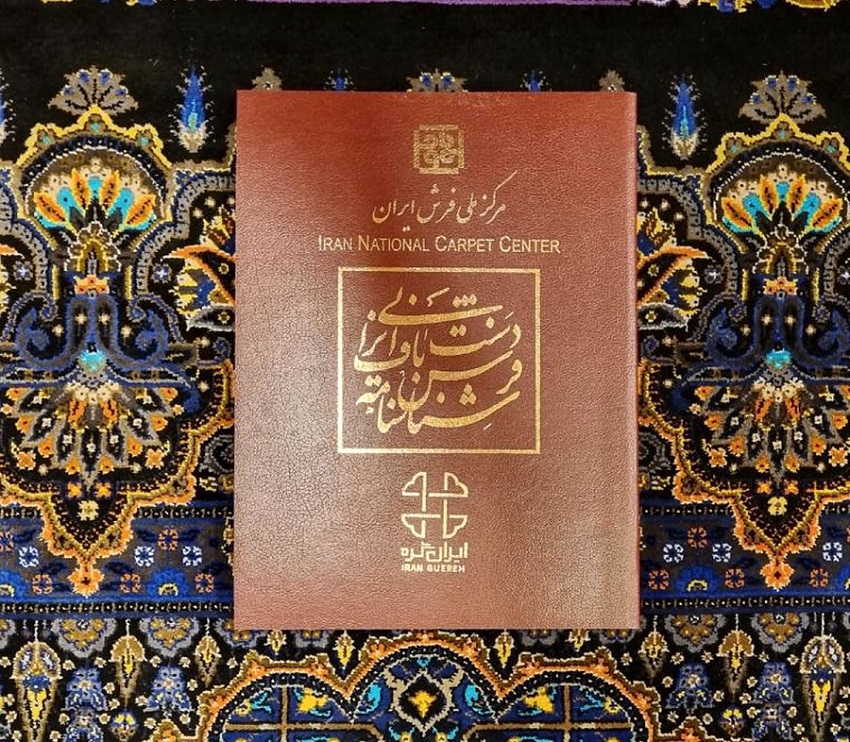 مرکز ملی فرش ایران
IRAN NATIONAL CARPET CENTER
شناسنامه
فرش
دست باف ایرانی
ایران گره
IRAN GUEREH